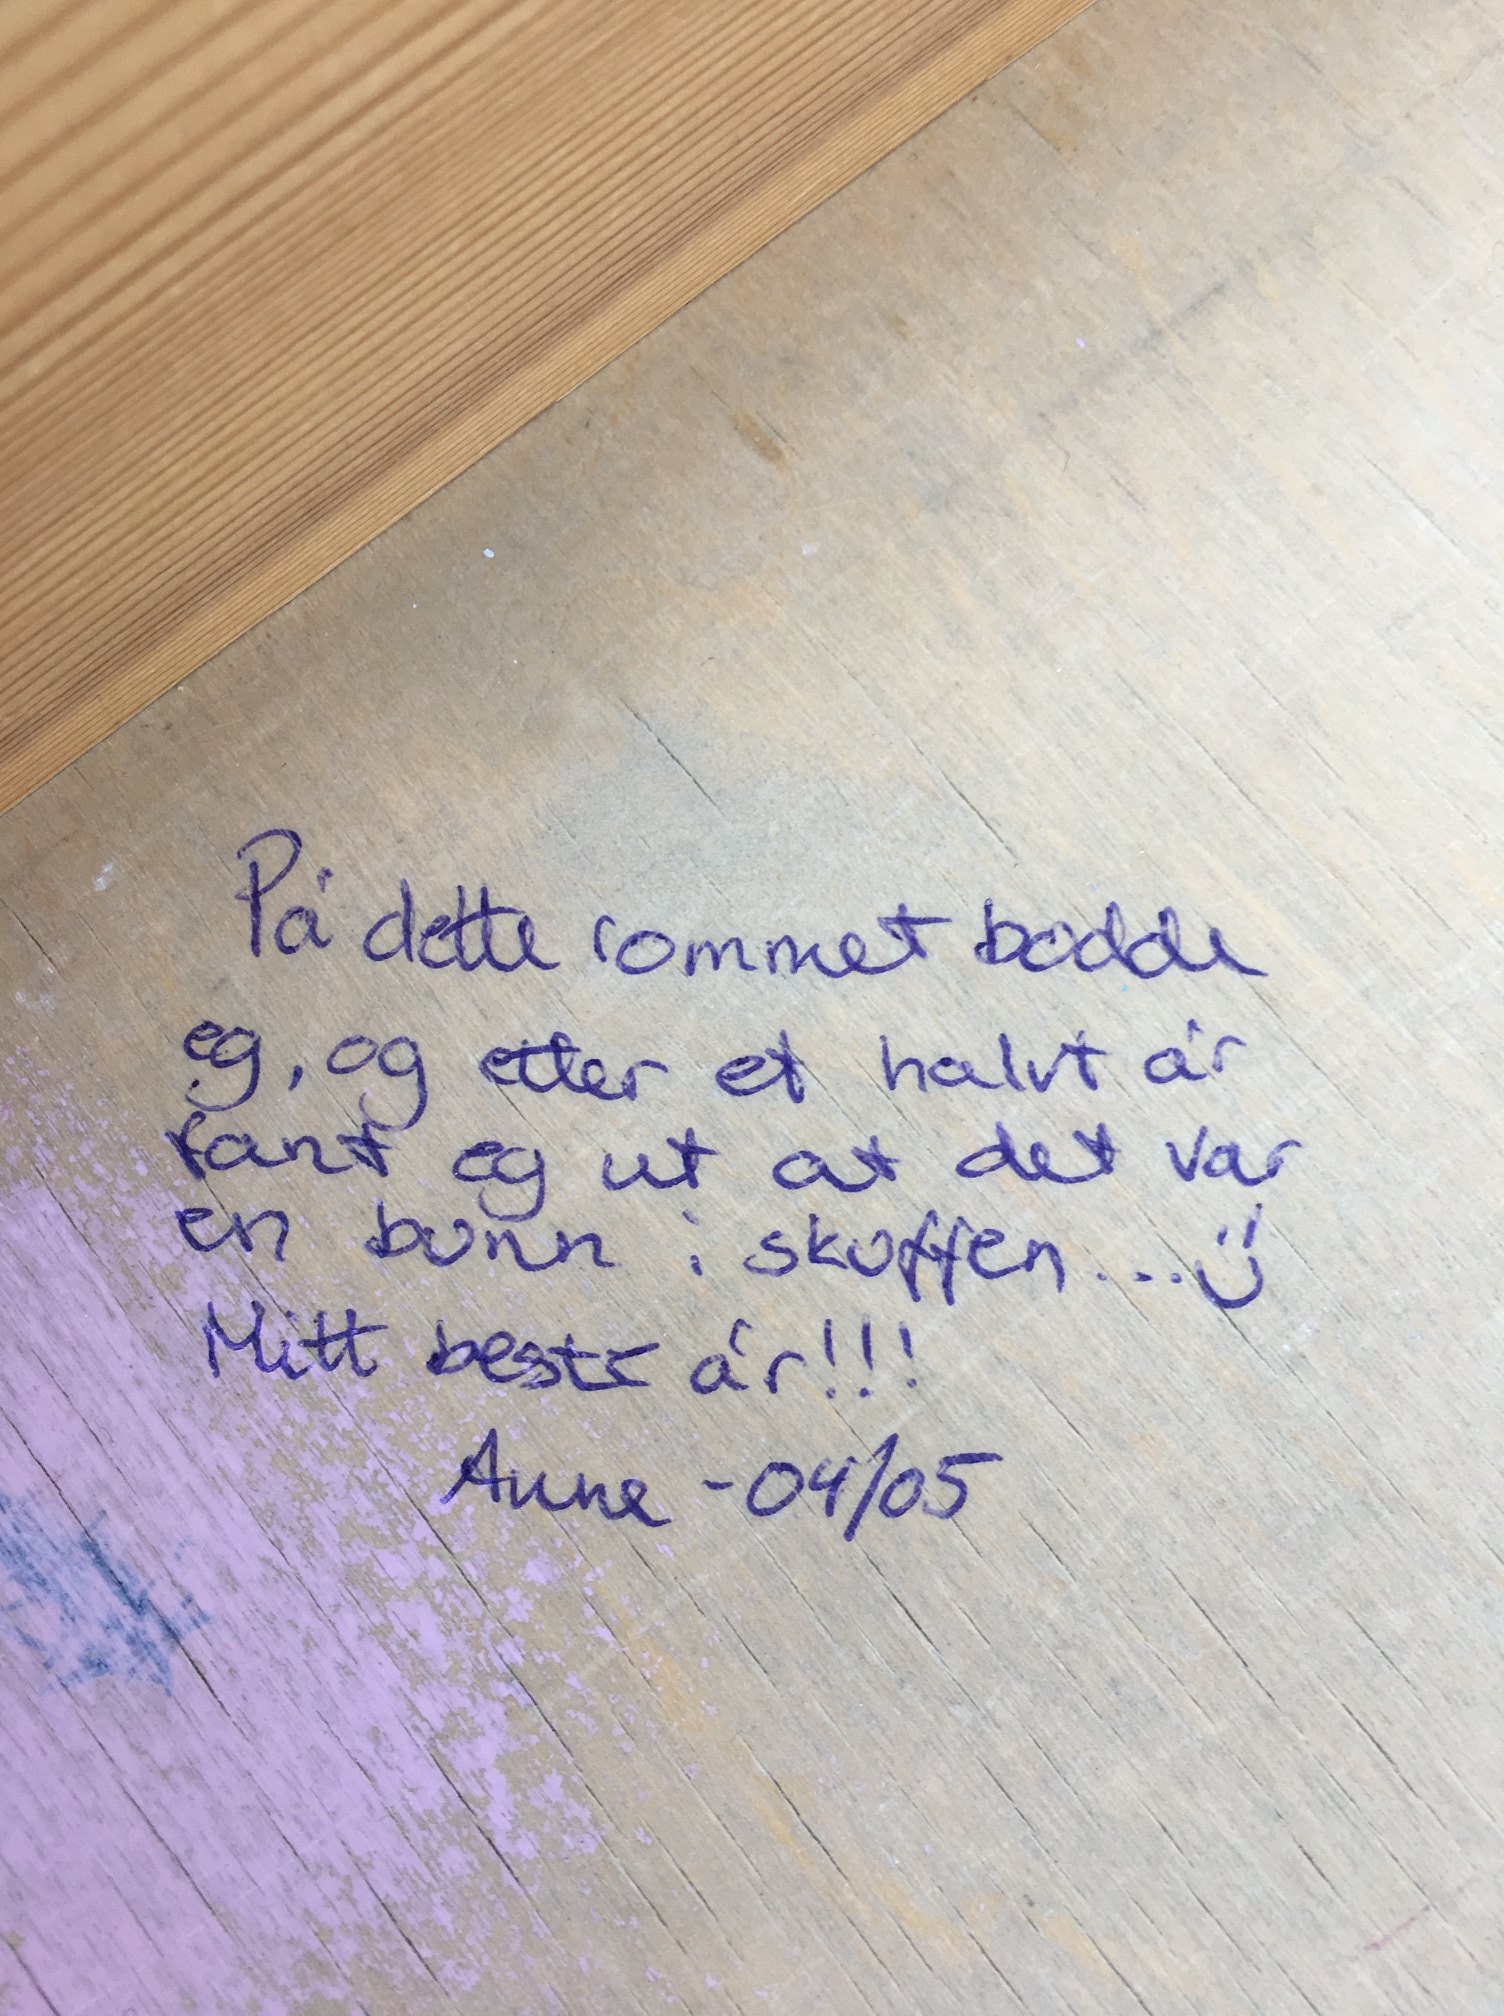 På dette rommet bodde
eg, og etter et halvt år
fant eg ut at det var
en bunn i skuffen...Ü
Mitt beste år!!!
Anne -04/05